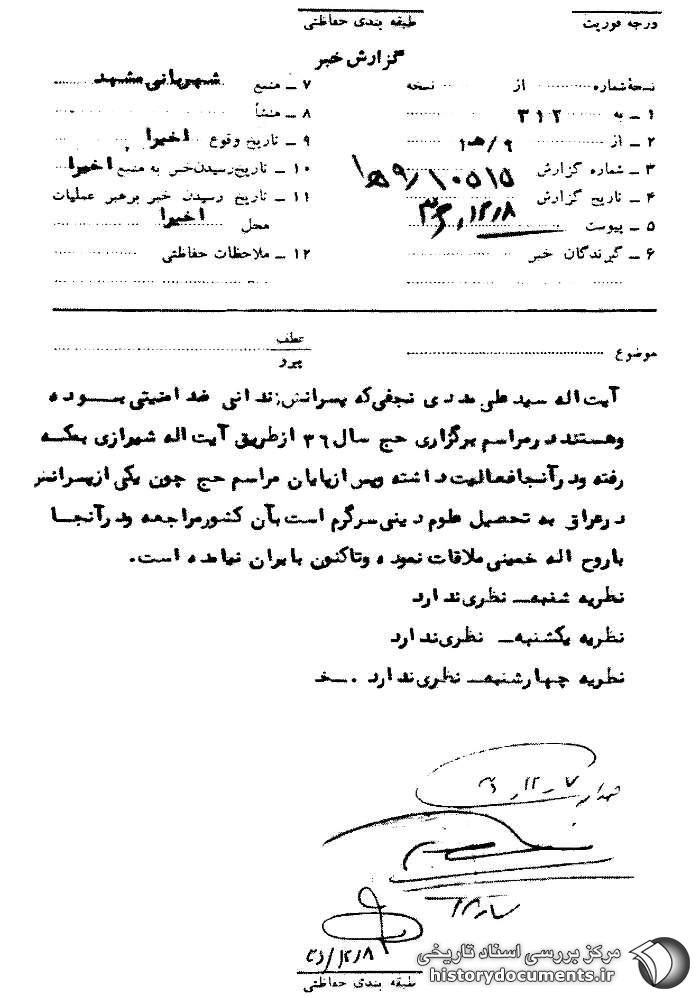 درجه فوریت
طبقه بندی حفاظتی
گزارش خبر
نسخهٔ شماره از نسخه
۱ – به ۳۱۲
۲ – از ۹/ه۱
۳ – شماره گزارش ۱۰۵۱۵/۹ه۱
۴ – تاریخ گزارش ۳۶٫۱۲٫۸
۵ – پیوست
۶ – گیرندگان خبر
۷ – منبع شهربانی مشهد
۸ – منشأ
۹ – تاریخ وقوع اخیرا
۱۰ – تاریخ رسیدن خبر به منبع اخیرا
۱۱ – تاریخ رسیدن خبر برهبر عملیات
محل اخیرا
۱۲ – ملاحظات حفاظتی
موضوع
عطف
پیرو
آیت اله سید علی مددی نجفی که پسرانش زندانی ضد امنیتی بوده
وهستند در مراسم برگزاری حج سال ۳۶ از طریق آیت اله شیرازی بمکه
رفته ودر آنجا فعالیت داشته وپس از پایان مراسم حج چون یکی از پسرانش
در عراق به تحصیل علوم دینی سرگرم است بآن کشور مراجعه ودر آنجا
با روح اله خمینی ملاقات نموده وتاکنون بایران نیامده است.
نظریه شنبه – نظری ندارد
نظریه یکشنبه – نظری ندارد
نظریه چهارشنبه – نظری ندارد . خ
۷-۱۲-
۱۲٫۸
طبقه بندی حفاظتی
مرکز بررسی اسناد تاریخی
historydocuments.ir